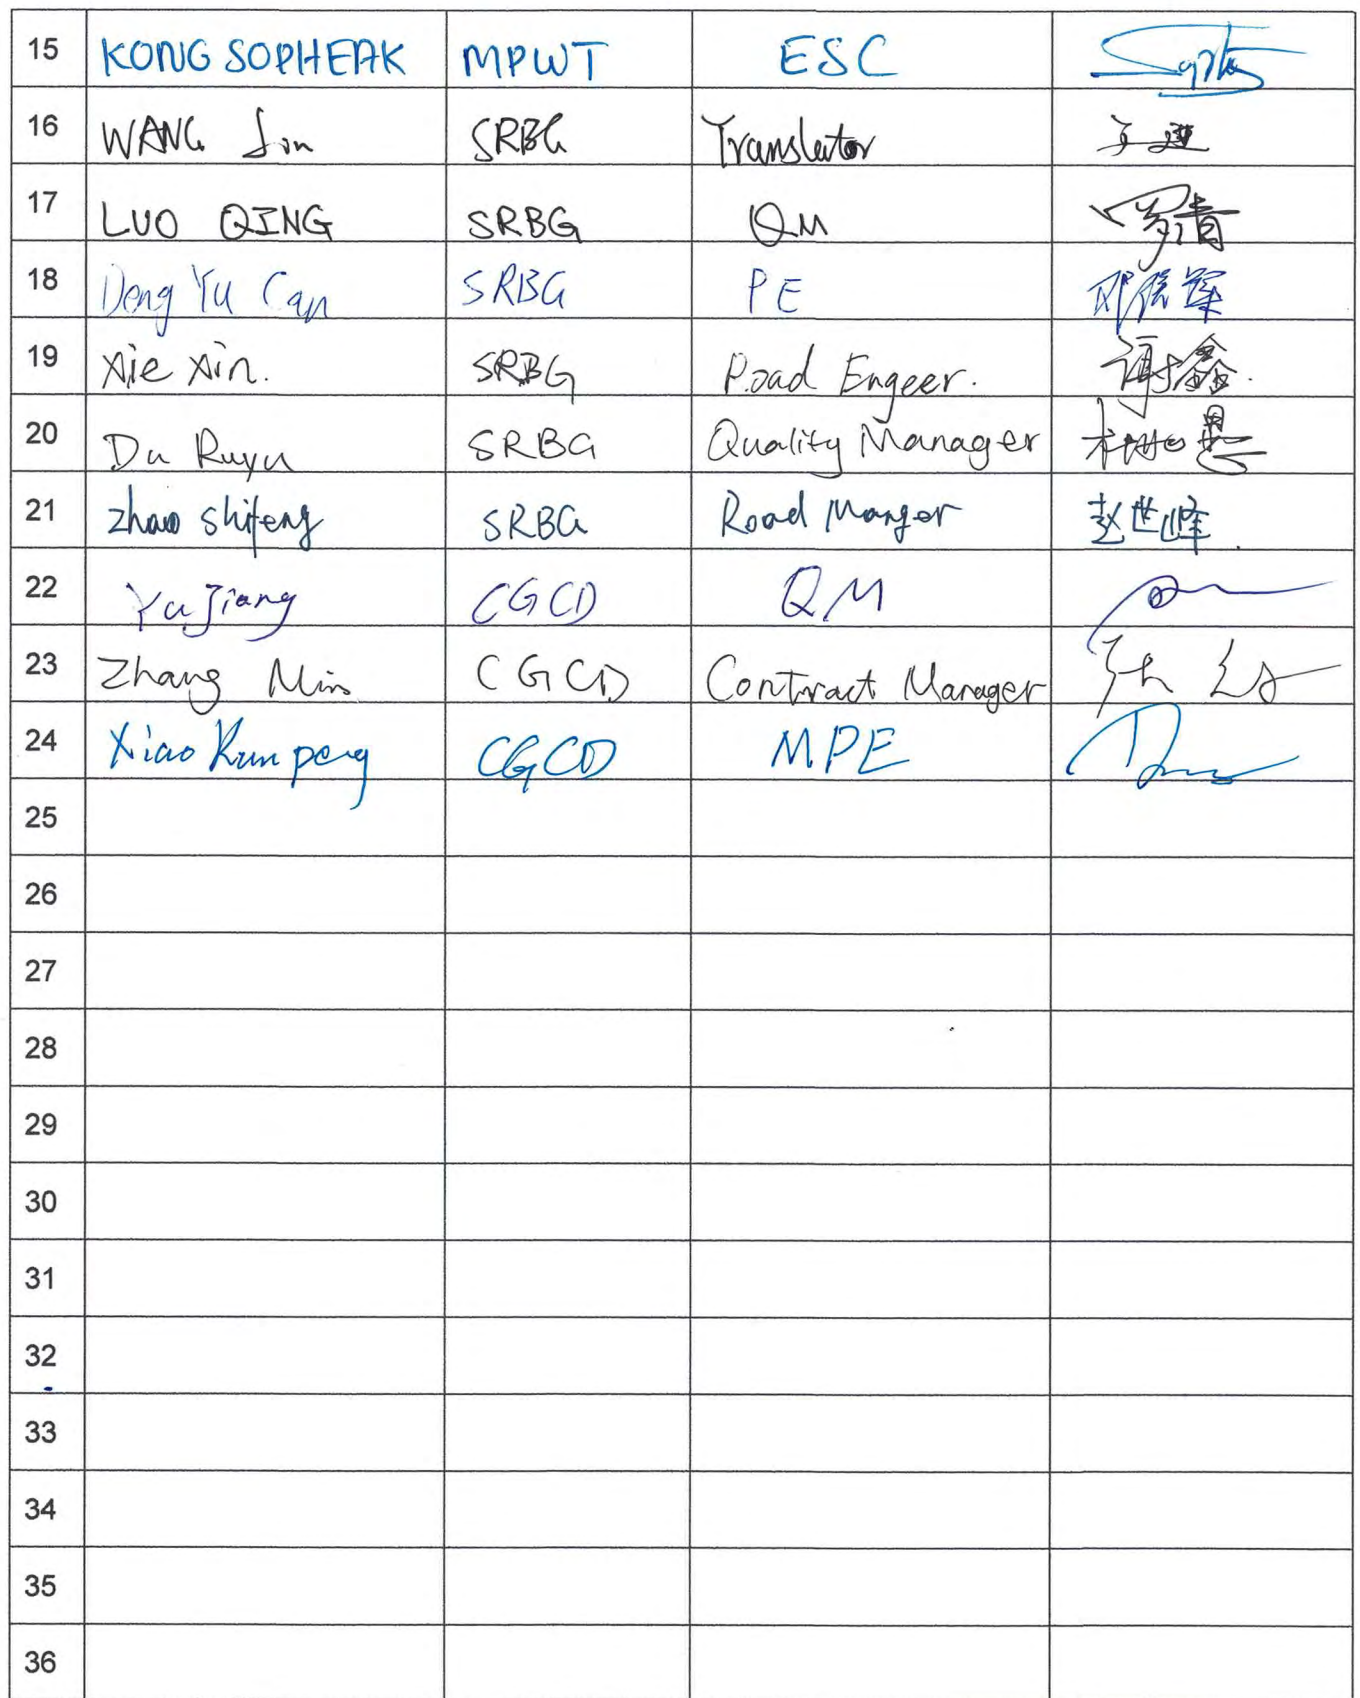 15 KONG SOPHEAK MPWT ESC
16 WANG SRBG Translator
17 LUO QING SRBG QM 罗青
18 Deng Yu Can SRBG PE
19 Xie Xin. SRBG Road Engeer. 谢鑫.
20 Du Ruyu SRBG Quality Manager
21 Zhao Shifeng SRBG Road Manger 赵世峰.
22 Yu Jiang CGCD QM
23 Zhang Min CGCD Contract Manager
24 Xiao Kunpeng CGCD MPE
25
26
27
28
29
30
31
32
33
34
35
36